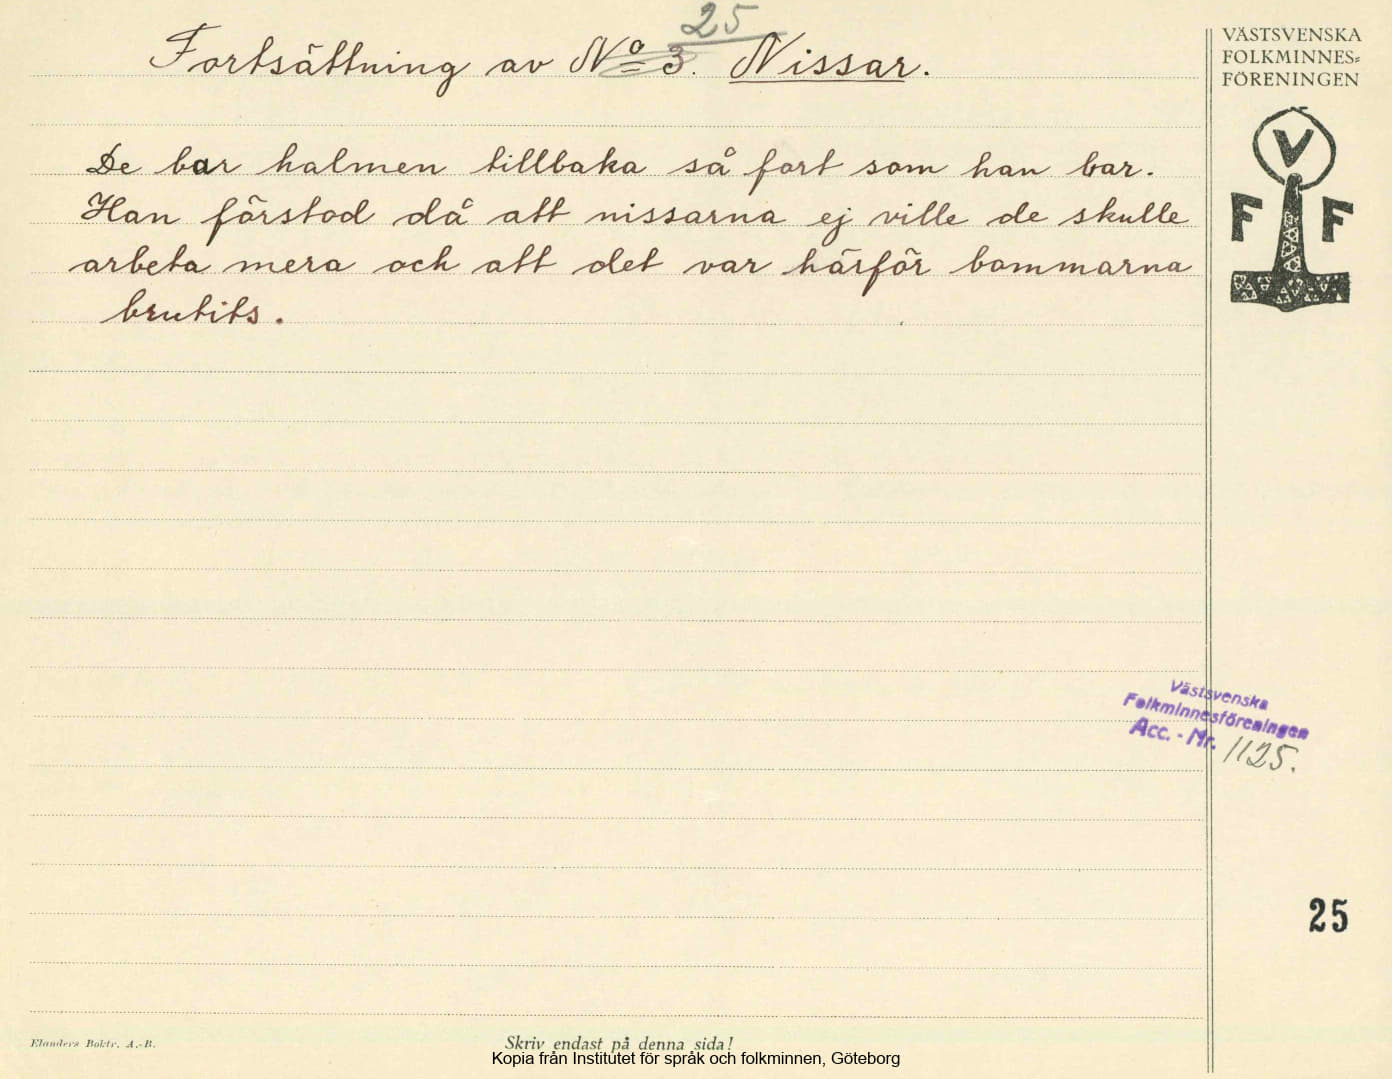 25
Fortsättning av No 3. Nissar.
De bar halmen tillbaka så fort som han bar.
Han förstod då att nissarna ej ville de skulle
arbeta mera och att det var härför bommarna
brutits.
VÄSTSVENSKA
FOLKMINNES=
FÖRENINGEN
V
F F
Västsvenska
Folkminnesföreningen
Acc. - Nr. 1125.
25
Elanders Boktr. A.-B.
Skriv endast på denna sida!
Kopia från Institutet för språk och folkminnen, Göteborg